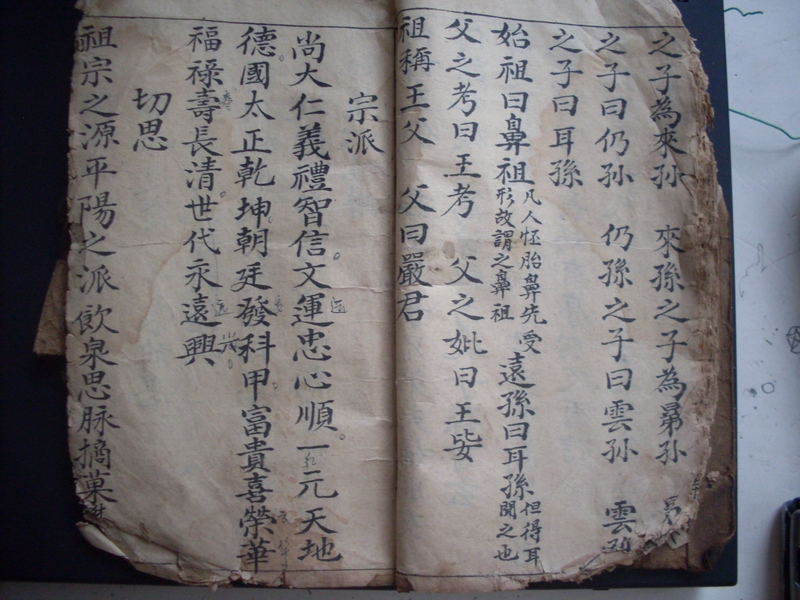 之子為來孫 來孫之子為晜孫
之子曰仍孫 仍孫之子曰雲孫 雲孫
之子曰耳孫
始祖曰鼻祖 凡人怪胎鼻先受形故謂之鼻祖 遠孫曰耳孫 但得耳聞之也
父之考曰王考 父之妣曰王妣
祖稱王父 父曰嚴君
宗派
尚大仁義禮智信文運忠心順一元天地
德國太正乾坤朝廷發科甲富貴喜榮華
福祿壽長清世代永遠興
切思
祖宗之源平陽之派飲泉思脉摘菓